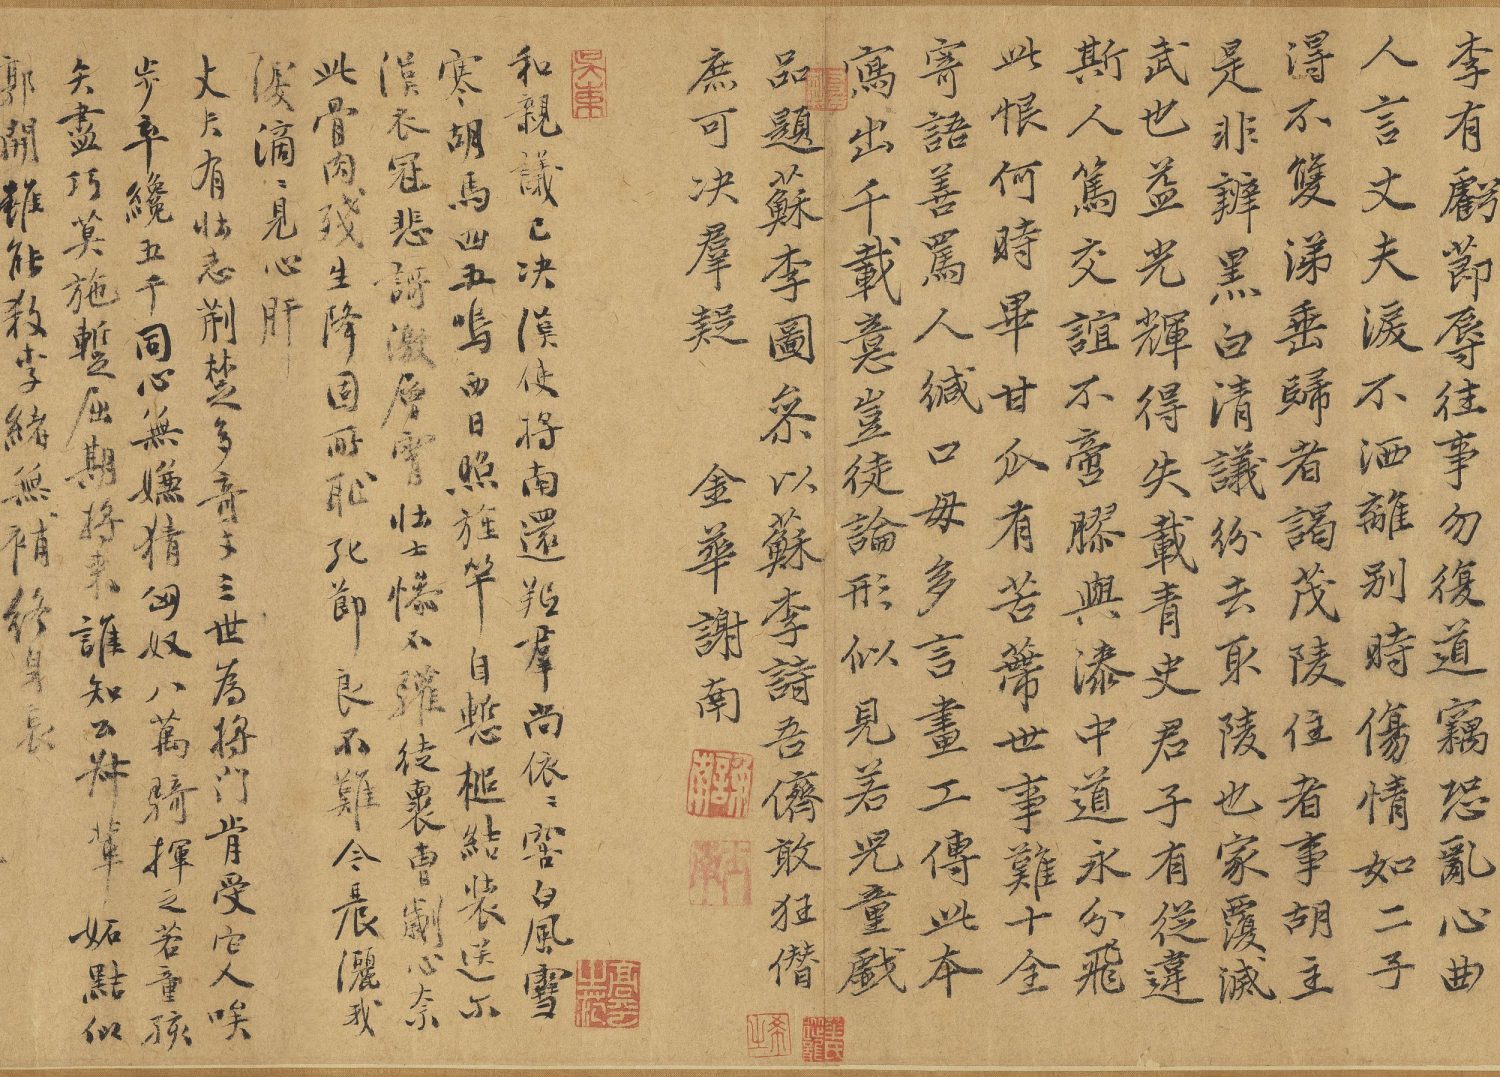 李有虧節辱往事勿復道竊恐亂心曲
人言丈夫淚不洒離別時傷情如二子
得不雙涕垂歸者謁茂陵住者事胡主
是非辦黑白清議紛去取陵也家覆滅
武也益光輝得失載青史君子有從違
斯人篤交誼不啻膠與漆中道永分飛
此恨何時畢甘瓜有苦蔕世事難十全
寄語善罵人緘口毋多言畫工傳此本
寫出千載意豈徒論形似見若兒童戲
品題蘇李圖氶以蘇李詩吾儕敢狂僭
庶可決羣疑 金華謝南
和親議已決漢使將南還羝羣尚依〻窖白風雪
寒胡馬四五鳴西日照旌竿自慙椎結裝送尔
漢衣冠悲謌激層霄壯士慘不驩徒裹曹劌心柰
此骨肉殘生降固所恥死節良不難今晨灑我
淚滴〻見心肝
丈夫有壯志荊楚多奇士三世為將門肯受它人唉
步卒纔五千同心無嫌猜匈奴八萬騎揮之若童孩
矢盡巧莫施蹔屈期將來誰知公孫輩妬點似
郭開雖能殺李緒無補終身哀